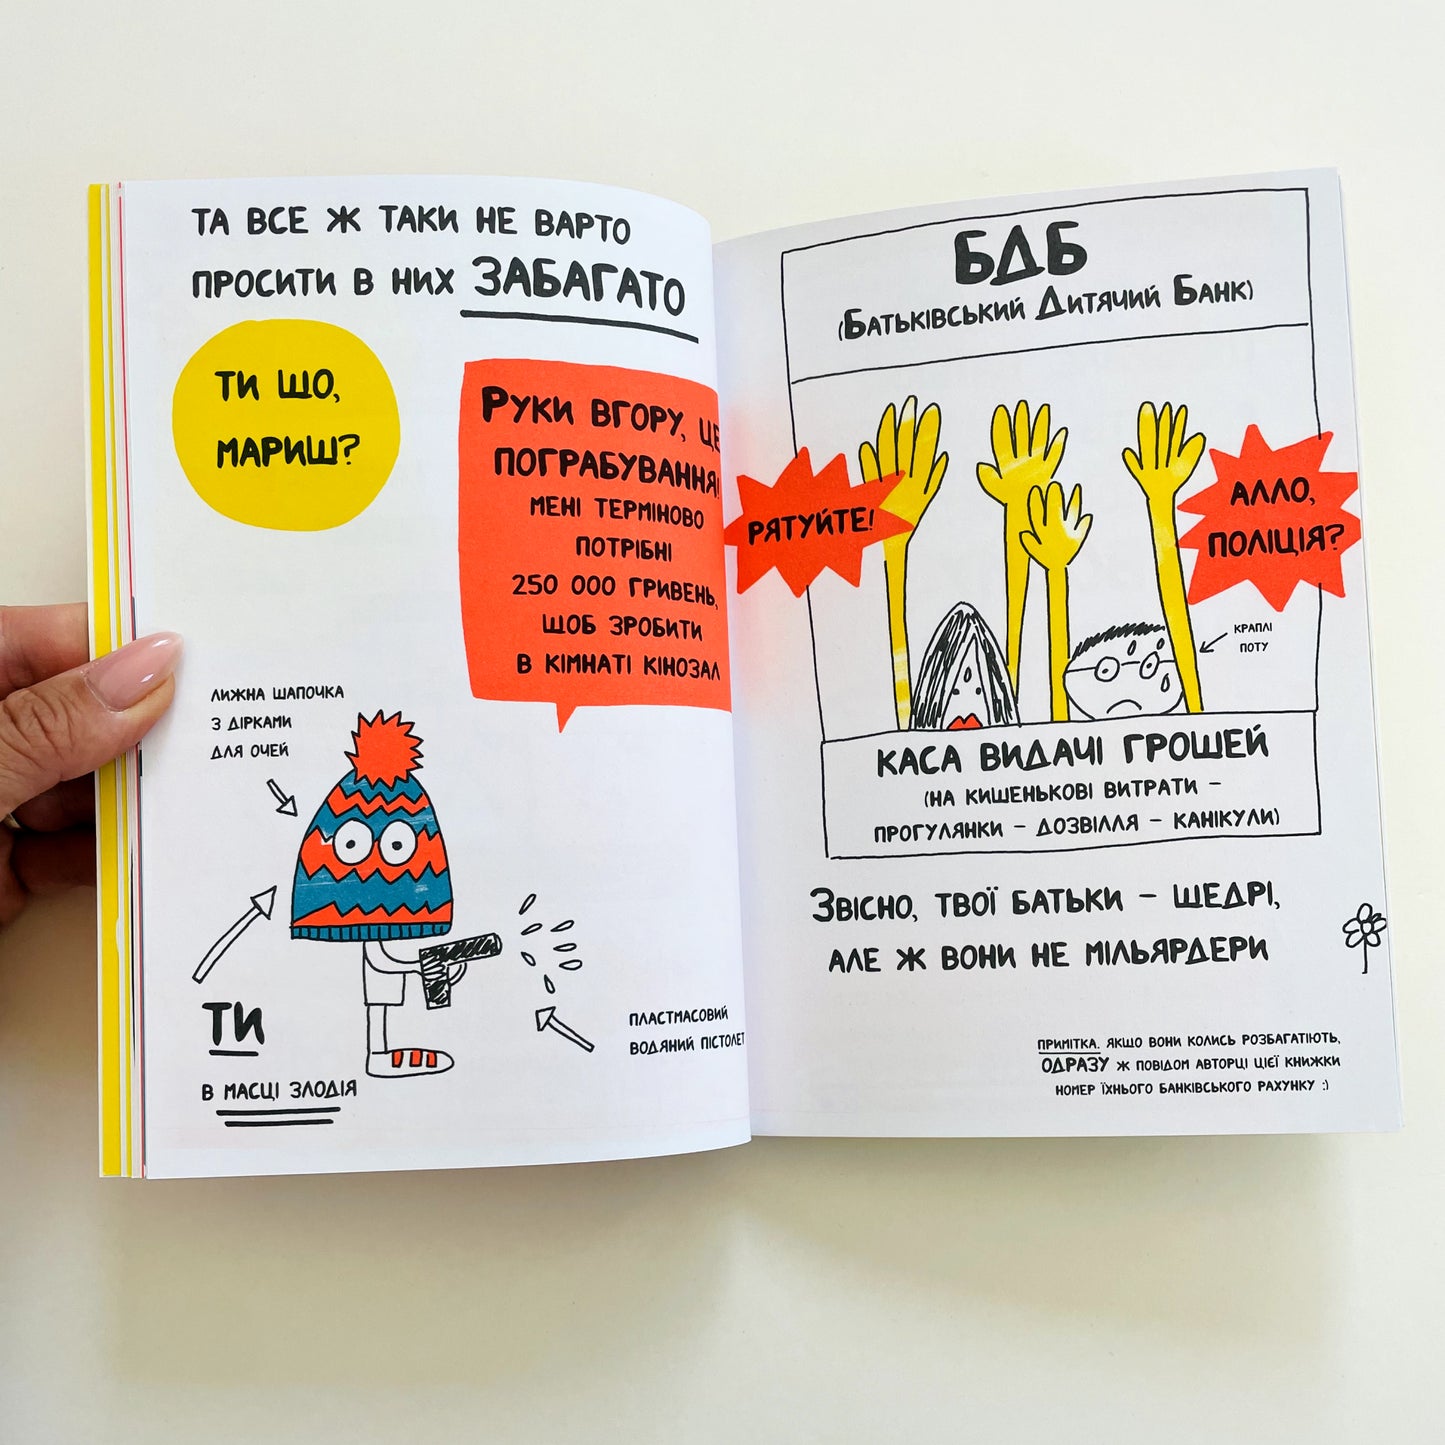 ТА ВСЕ Ж ТАКИ НЕ ВАРТО
ПРОСИТИ В НИХ ЗАБАГАТО
ТИ ЩО,
МАРИШ?
РУКИ ВГОРУ, ЦЕ
ПОГРАБУВАННЯ!
МЕНІ ТЕРМІНОВО
ПОТРІБНІ
250 000 ГРИВЕНЬ,
ЩОБ ЗРОБИТИ
В КІМНАТІ КІНОЗАЛ
ЛИЖНА ШАПОЧКА
З ДІРКАМИ
ДЛЯ ОЧЕЙ
ТИ
В МАСЦІ ЗЛОДІЯ
ПЛАСТМАСОВИЙ
ВОДЯНИЙ ПІСТОЛЕТ
БДБ
(БАТЬКІВСЬКИЙ ДИТЯЧИЙ БАНК)
РЯТУЙТЕ!
АЛЛО,
ПОЛІЦІЯ?
КРАПЛІ
ПОТУ
КАСА ВИДАЧІ ГРОШЕЙ
(НА КИШЕНЬКОВІ ВИТРАТИ –
ПРОГУЛЯНКИ – ДОЗВІЛЛЯ – КАНІКУЛИ)
ЗВІСНО, ТВОЇ БАТЬКИ – ЩЕДРІ,
АЛЕ Ж ВОНИ НЕ МІЛЬЯРДЕРИ
ПРИМІТКА. ЯКЩО ВОНИ КОЛИСЬ РОЗБАГАТІЮТЬ,
ОДРАЗУ Ж ПОВІДОМ АВТОРЦІ ЦІЄЇ КНИЖКИ
НОМЕР ЇХНЬОГО БАНКІВСЬКОГО РАХУНКУ :)